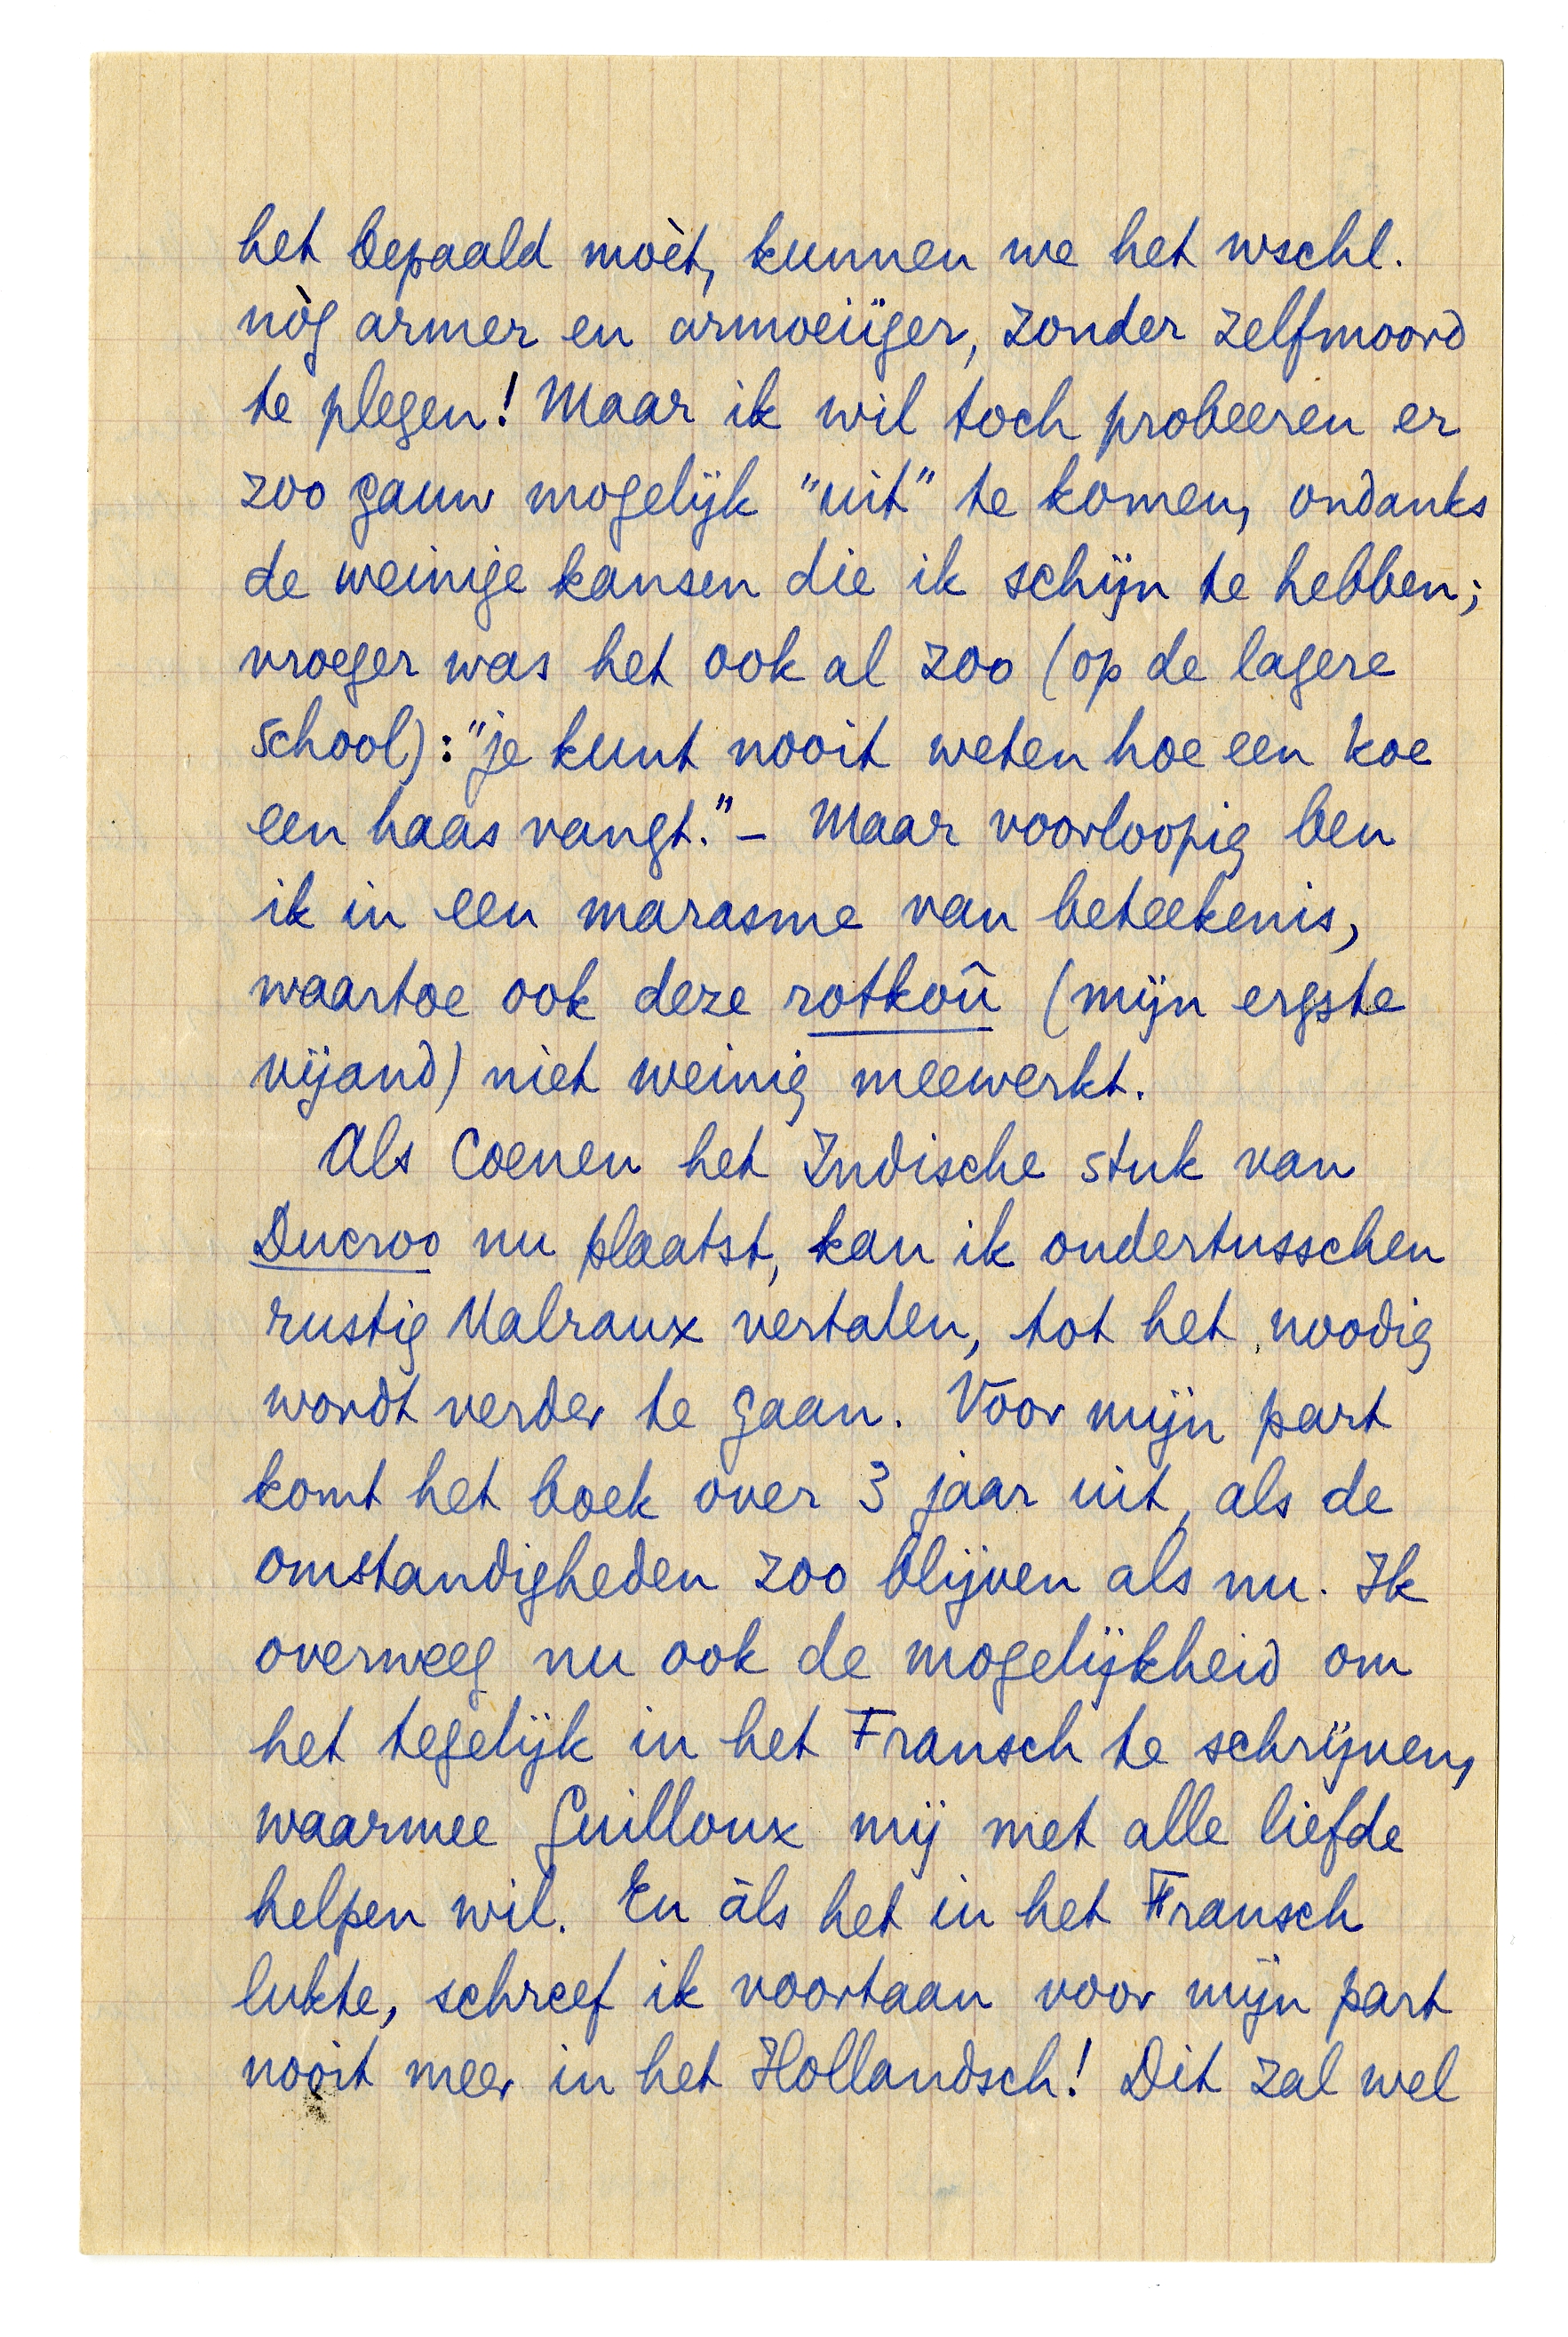 het bepaald moèt, kunnen we het wschl.
nòg armer en armoeiïger, zonder zelfmoord
te plegen! Maar ik wil toch probeeren er
zoo gauw mogelijk "uit" te komen, ondanks
de weinige kansen die ik schijn te hebben;
vroeger was het ook al zoo (op de lagere
school): "je kunt nooit weten hoe een koe
een haas vangt." – Maar voorloopig ben
ik in een marasme van beteekenis,
waartoe ook deze rotkoû (mijn ergste
vijand) niet weinig meewerkt.
Als Coenen het Indische stuk van
Ducroo nu plaatst, kan ik ondertusschen
rustig Malraux vertalen, tot het noodig
wordt verder te gaan. Voor mijn part
komt het boek over 3 jaar uit, als de
omstandigheden zoo blijven als nu. Ik
overweeg nu ook de mogelijkheid om
het tegelijk in het Fransch te schrijven,
waarmee Guilloux mij met alle liefde
helpen wil. En àls het in het Fransch
lukte, schreef ik voortaan voor mijn part
nooit meer in het Hollandsch! Dit zal wel